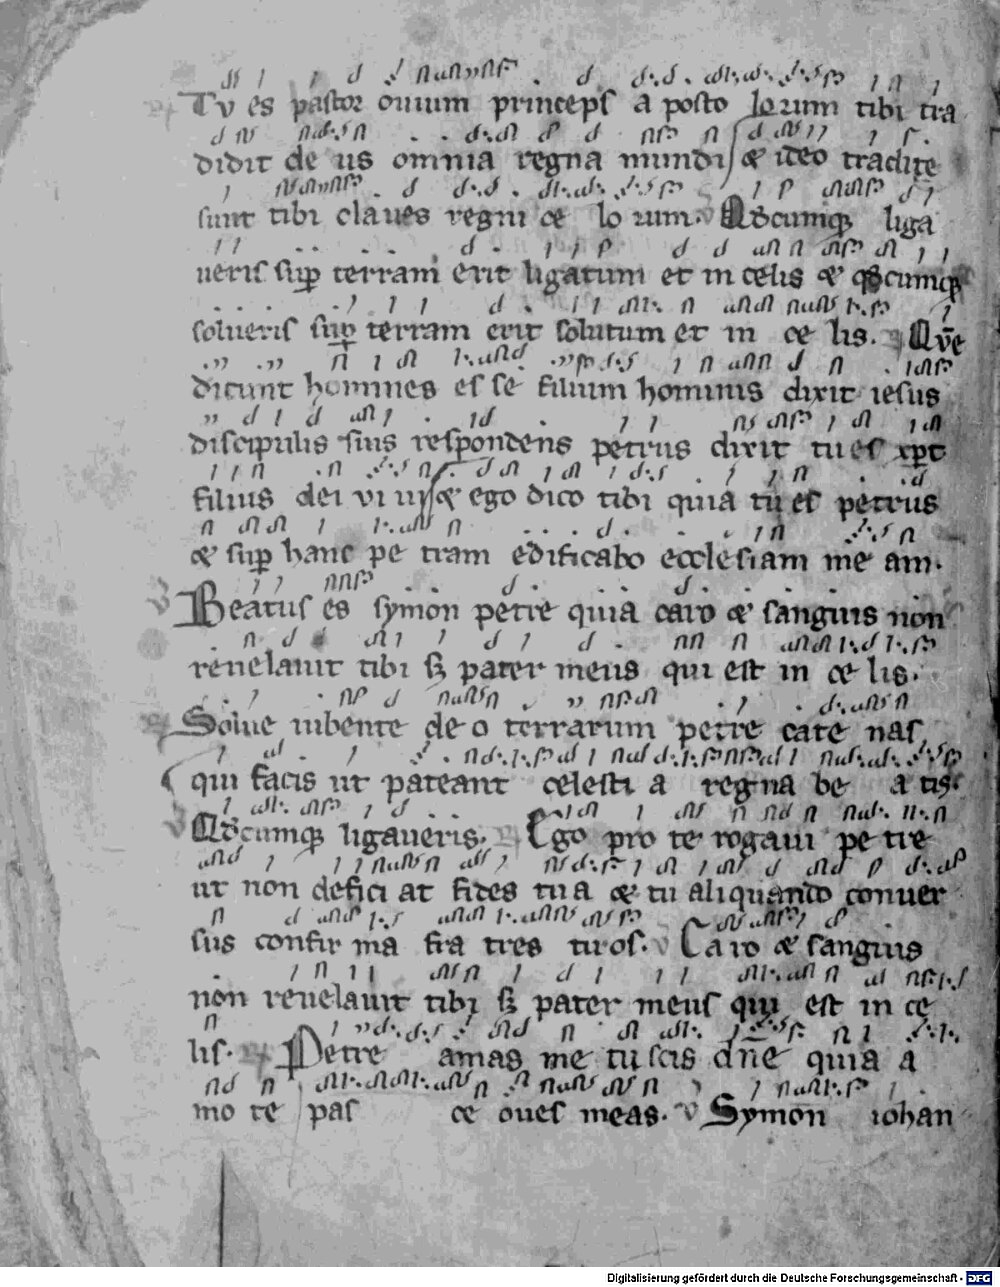 Tu es pastor ouium princeps a posto lorum tibi tra
didit de us omnia regna mundi & ideo tradite
sunt tibi claues regni ce lo rum. v Qdcumq; liga
ueris sup terram erit ligatum et in celis & qdcumq;
solueris sup terram erit solutum et in ce lis. Que
dicunt homines es se filium hominis dixit iesus
discipulis suis respondens petrus dixit tu es xpc
filius dei vi ui & ego dico tibi quia tu es petrus
& sup hanc pe tram edificabo ecclesiam me am.
v Beatus es symon petre quia caro & sanguis non
reuelauit tibi sz pater meus qui est in ce lis.
Solue iubente de o terrarum petre cate nas
qui facis ut pateant celesti a regna be a tis.
v Qdcumq; ligaueris. Ego pro te rogaui pe tre
ut non defici at fides tu a & tu aliquando conuer
sus confir ma fra tres tuos. v Caro & sanguis
non reuelauit tibi sz pater meus qui est in ce
lis. Petre amas me tu scis dne quia a
mo te pas ce oues meas. v Symon iohan
Digitalisierung gefördert durch die Deutsche Forschungsgemeinschaft - DFG